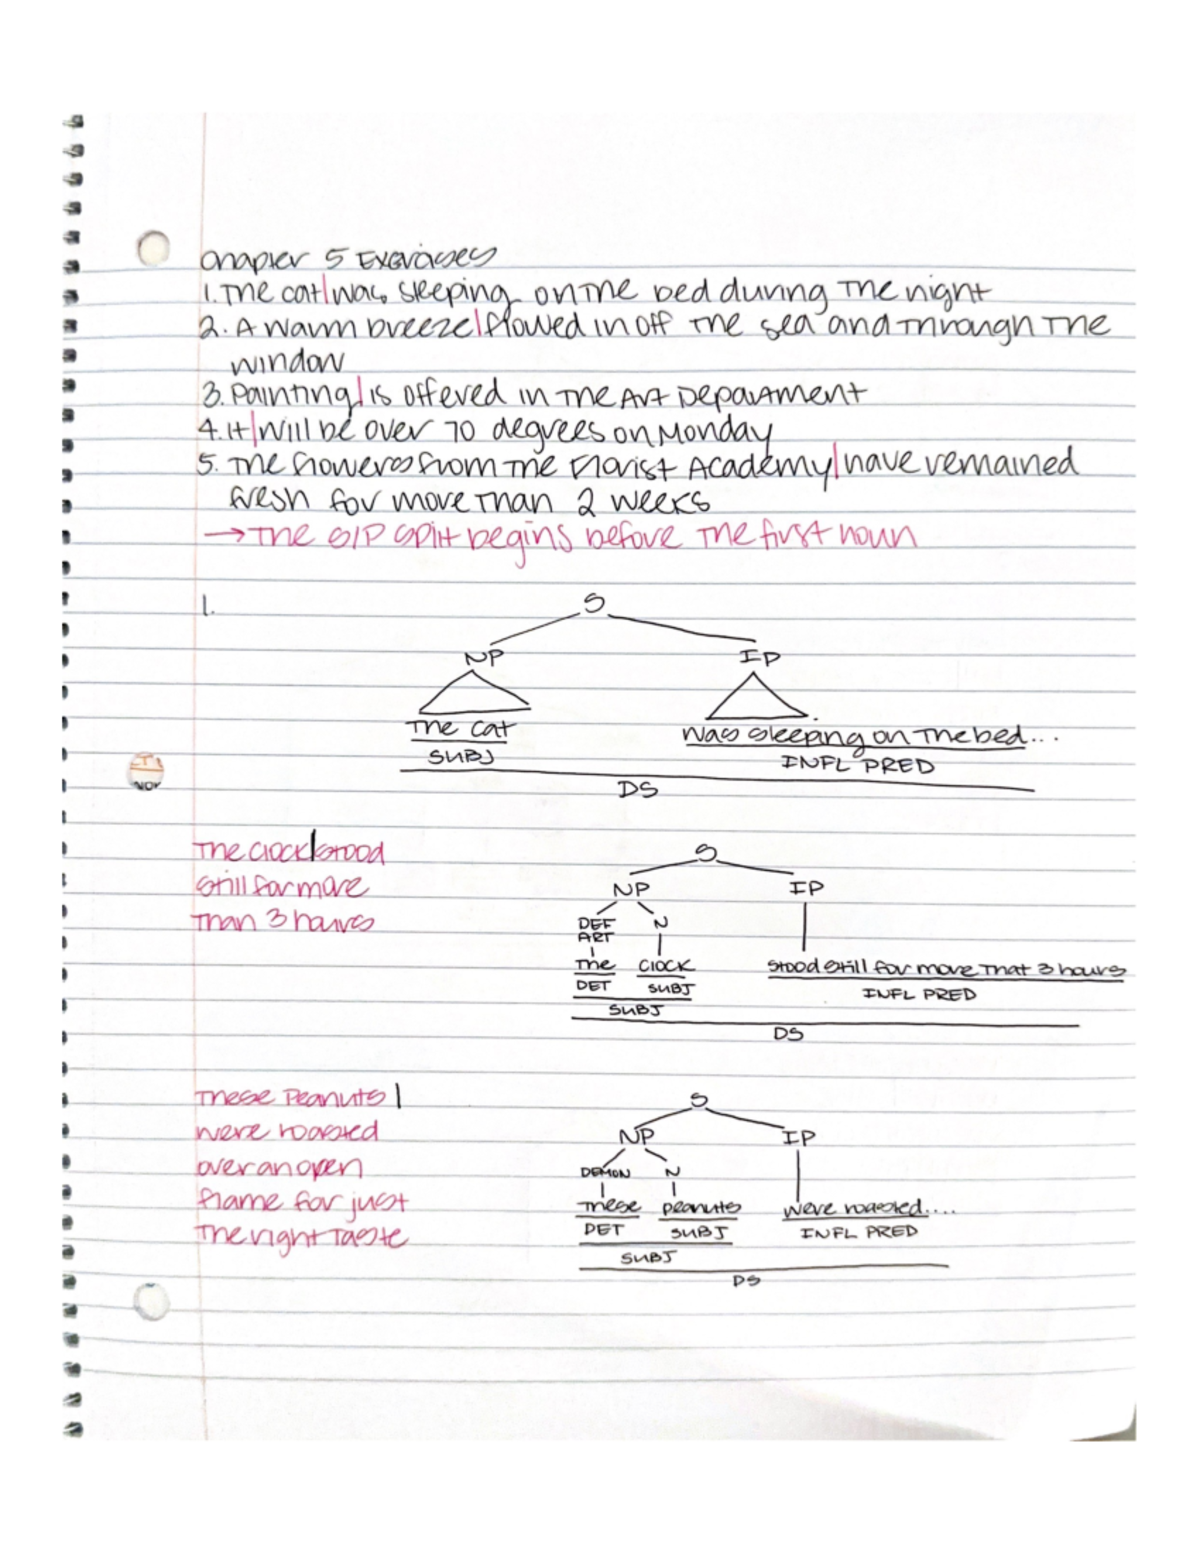 Chapter 5 Exercises
1. The cat|was sleeping on the bed during the night
2. A warm breeze|flowed in off the sea and through the
window
3. Painting|is offered in the Art Department
4. It|will be over 70 degrees on Monday
5. The flowers from the Florist Academy|have remained
fresh for more than 2 weeks
→The S/P split begins before the first noun
1.
S
NP IP
The cat was sleeping on the bed...
SUBJ INFL PRED
DS
The clock|stood
still for more
than 3 hours
S
NP IP
DEF
ART N
The clock stood still for more that 3 hours
DET SUBJ INFL PRED
SUBJ
DS
These Peanuts|
were roasted
over an open
flame for just
the right taste
S
NP IP
DEMON N
These peanuts were roasted....
DET SUBJ INFL PRED
SUBJ
DS